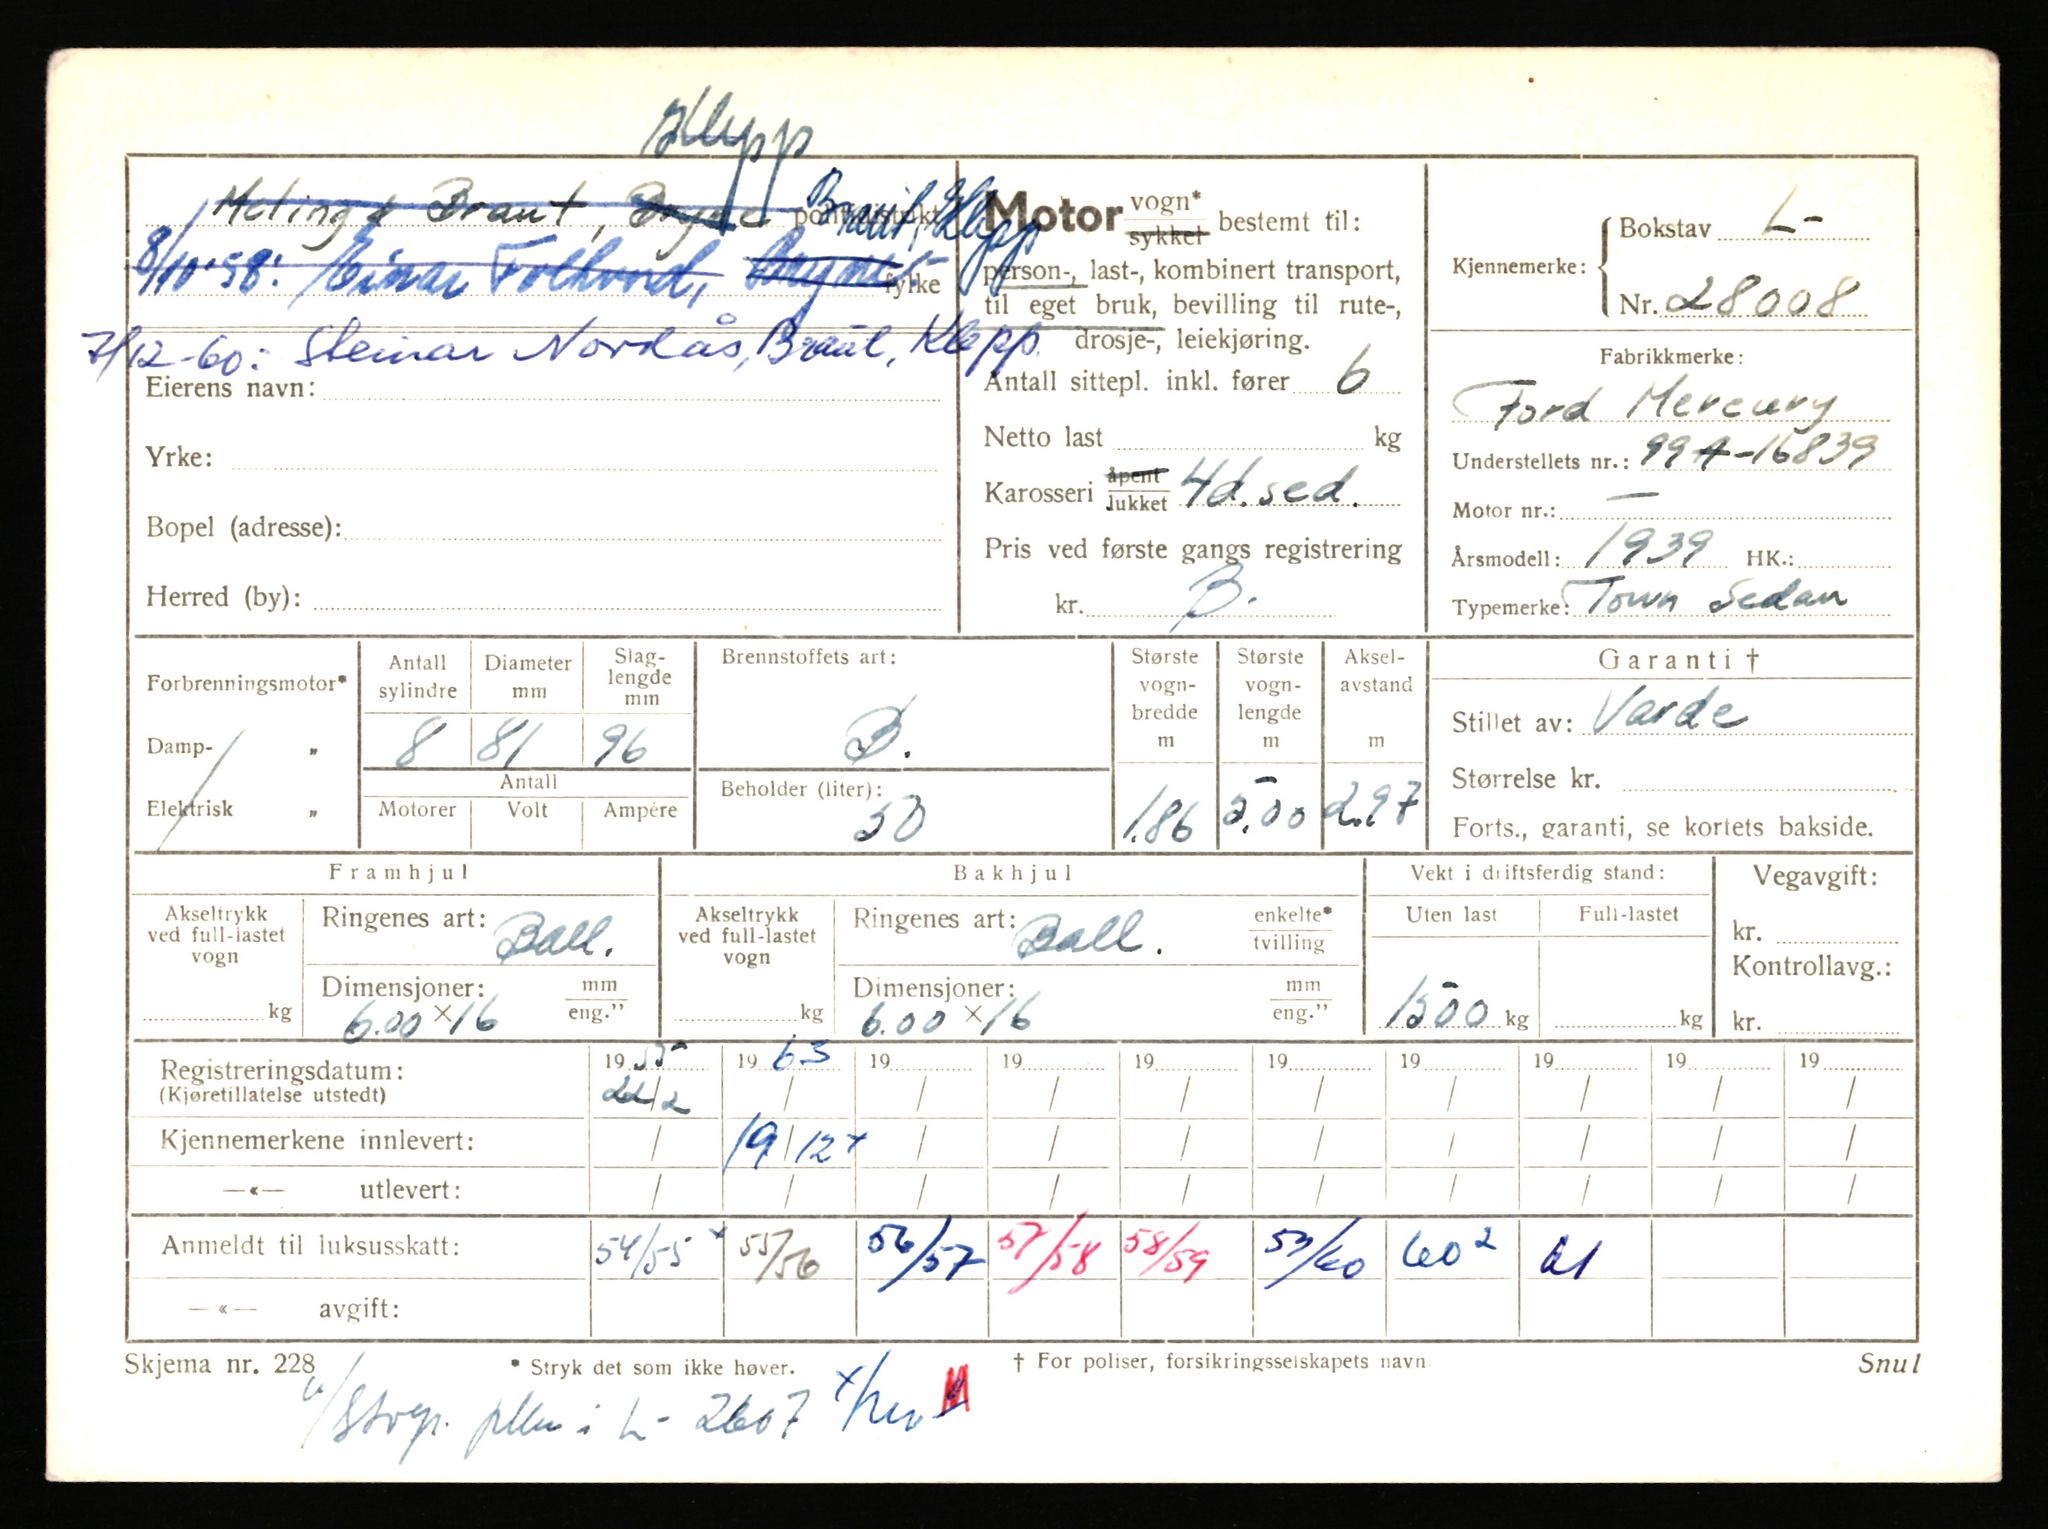 Klepp
Meling & Braut, Bryne politidistrikt Braut, Klepp
8/10-58: Einar Folkvord, Bryne. fylke
7/12-60: Steinar Nordås, Braut, Klepp.
Eierens navn:
Yrke:
Bopel (adresse):
Herred (by):
Motor vogn* sykkel bestemt til:
person-, last-, kombinert transport,
til eget bruk, bevilling til rute-,
drosje-, leiekjøring.
Antall sittepl. inkl. fører 6
Netto last kg
Karosseri åpent lukket 4d. sed.
Pris ved første gangs registrering
kr. B.
Kjennemerke: Bokstav L-
Nr. 28008
Fabrikkmerke:
Ford Mercury
Understellets nr.: 99A-16839
Motor nr.: —
Årsmodell: 1939 HK.:
Typemerke: Town Sedan
Forbrenningsmotor*
Damp- „
Elektrisk „
Antall sylindre Diameter mm Slag-lengde mm
8 81 96
Antall
Motorer Volt Ampére
Brennstoffets art:
B.
Beholder (liter):
50
Største vogn-bredde m Største vogn-lengde m Aksel-avstand m
1.86 5.00 2.97
Garanti †
Stillet av: Varde
Størrelse kr.
Forts., garanti, se kortets bakside.
Framhjul
Akseltrykk ved full-lastet vogn
kg
Ringenes art: Ball.
Dimensjoner: mm eng.”
6.00 × 16
Bakhjul
Akseltrykk ved full-lastet vogn
kg
Ringenes art: Ball. enkelte* tvilling
Dimensjoner: mm eng.”
6.00 × 16
Vekt i driftsferdig stand:
Uten last Full-lastet
1500 kg kg
Vegavgift:
kr.
Kontrollavg.:
kr.
Registreringsdatum: 19 55 19 63 19 19 19 19 19 19 19 19
(Kjøretillatelse utstedt) 22/2 / / / / / / / / /
Kjennemerkene innlevert: / 19/12 x / / / / / / / /
—«— utlevert: / / / / / / / / / /
Anmeldt til luksusskatt: 54/55 x 55/56 56/57 57/58 58/59 59/60 60² 61
—«— avgift:
Skjema nr. 228 * Stryk det som ikke høver. † For poliser, forsikringsselskapets navn. Snul
i L- 2607